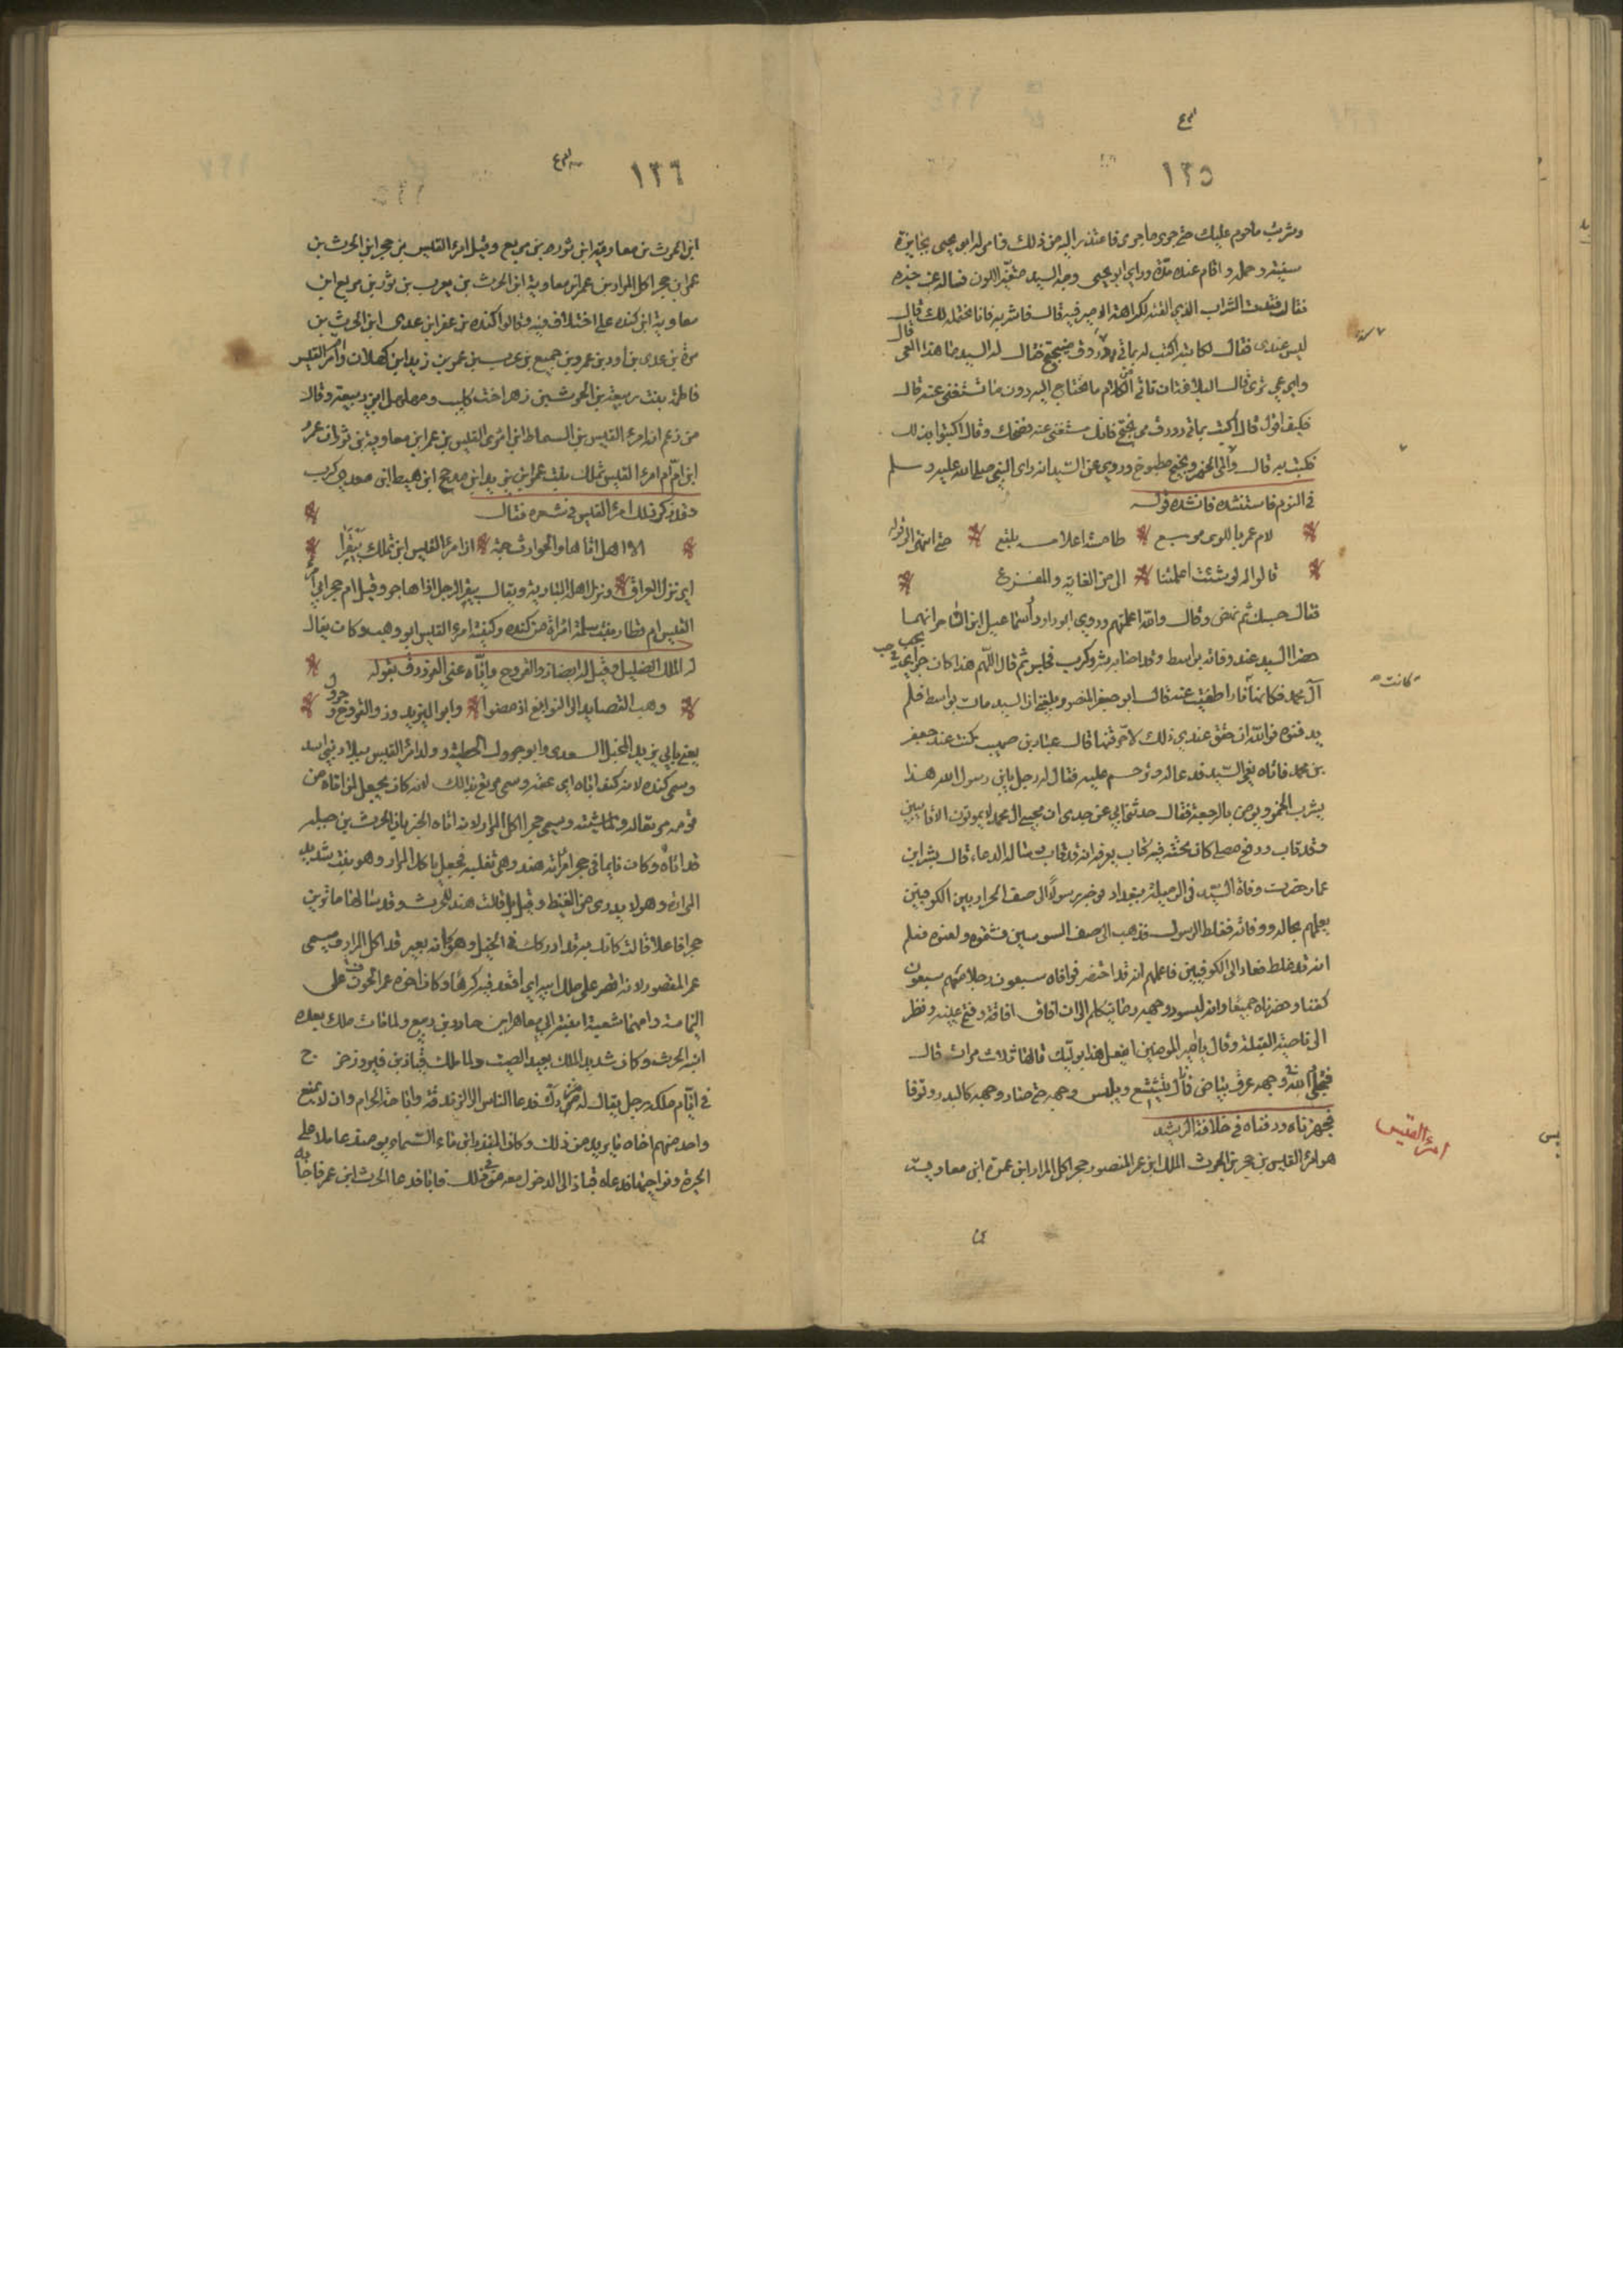 ١٣٥
وشرب ما حرم عليك حتى جرى ما جرى فاعتذر اليه من ذلك فامر له ابو بجير بجايزة
سنيته وحمله واقام عنده مدة وراى ابو بجير وجه السيد متغير اللون فساله عن خبره
فقال فقدت الشراب الذي الفته لكراهة الامير فيه قال فاشربه فانا نحتمله لك قال
ليس عندى فقال لكاتبه اكتب له بماتي دورق ميبختج فقال له السيد ما هذا العى قال
واي عي ترى قال البلاغة ان تاتي من الكلام ما تحتاج اليه دون ما تستغنى عنه قال
فكيف اقول قال اكتب بماتي دورق مي بختج فانك مستغنى عنه فضحك وقال اكتبوا بذلك
فكتب به قال والمي الخمر وبختج مطبوخ وروي عن السيد انه راى النبي صلى الله عليه وسلم
في النوم فاستنشده فانشده قوله
لام عمر باللوى مربع طامسة اعلامه بلقع حتى انتهى الى قوله
قالوا له لو شئت اعلمتنا الى من الغاية والمفزع
فقال حسبك ثم نفض وقال والله اعلمتهم وروي ابو داود واسماعيل ابن الساحر انهما
حضرا السيد عند وفاته بواسط وقد اصابه شرى وكرب فجلس ثم قال اللهم هذا كان جزاي حب
كانت
آل محمد فكانما نارا طفيت عنه قال ابو جعفر المنصور بلغني ان السيد مات بواسط فلم
يدفنوه فوالله ان حقق عندي ذلك لاحرقنها قال عباد بن صهيب كنت عند جعفر
بن محمد فاتاه نعي السيد فدعا له وترحم عليه فقال له رجل يابن رسول الله هذا
يشرب الخمر ويومن بالرجعة فقال حدثني ابي عن جدى ان محبي ال محمد لا يموتون الا تايبين
وقد تاب ورفع مصلى كان تحته فيه كتاب يعرفه انه قد تاب وساله الدعاء قال بشر ابن
عمار حضرت وفاة السيد في الرميلة ببغداد فوجه رسولا الى صف الجرارين الكوفيين
يعلمهم بحاله ووفاته فغلط الرسول فذهب الى صف السوسيين فشتموه ولعنوه فعلم
انه قد غلط فعاد الى الكوفيين فاعلمهم انه قد احتضر فوافاه سبعون رجلا معهم سبعون
كفنا وحضرناه جميعا وانه ليسود وجهه وما يتكلم الى ان افاق افاقة وفتح عينيه ونظر
الى ناصية القبلة وقال يا امير المومنين اتفعل هذا بوليك قالها ثلاث مرات قال
فتجلى والله في وجهه عرق بياض فما زال يتسع ويلبس وجهه حتى صار وجهه كالبدر وتوفا
فجهزناه ودفناه في خلافة الرشيد
امرء القيس
هو امرء القيس بن حجر بن الحرث الملك ابن عمر المنصور حجر اكل المرار ابن عمرة ابن معاوية
١٣٦
ابن الحرث بن معاوية ابن ثور بن مربع وقيل امرء القيس بن حجر ابن الحرث بن
عمر ابن حجر اكل المرار بن عمر ابن معاوية ابن الحرث بن يعرب بن ثور بن مربع ابن
معاوية ابن كنده على اختلاف فيه وقالوا كنده بن عفر ابن عدى ابن الحرث بن
مرة بن عدى بن اود بن عمرو بن جميع بن عرب بن عمر بن زيد ابن كهلان وام امرء القيس
فاطمة بنت ربيعة بن الحرث بن زهير اخت كليب ومهلهل ابن ربيعة وقال
من زعم انه امرء القيس بن السماط ابن امرى القيس بن عمر ابن معاوية بن ثور ان
ام امرء القيس تملك بنت عمر ابن زيد ابن مدحج ابن هيط ابن معدي كرب
وقد ذكر ذلك امرء القيس في شعره فقال
الا هل اتاها والحوادث جمة ان امرء القيس ابن تملك بيقرا
اي نزل العراق ونزل اهل البادية ويقال بيقر الرجل اذا هاجر وقيل ام حجر ابي امرء
القيس ام قطام بنت سلمة امراة من كنده وكنية امرء القيس ابو وهب وكان يقال
له الملك الضليل وقيل له ايضا ذو القروح واياه عنى الفرزدق بقوله
وهب القصايد لى النوابغ اذ مضوا وابو اليزيد وذو القروح وجرول
يعني بابي يزيد المخبل السعدى وابو جرول الحطيئة وولد امرء القيس ببلاد بني اسد
وسمى كنده لانه كند اباه اي عقه وسمى مرتع بذلك لانه كان يجعل لمن اتاه من
قومه مرتعا له ولماشيته وسمى حجر اكل المرار لانه اتاه الخبر بان الحرث بن جبله
قد اتاه وكان نايما في حجر امراته هند وهي تفليه فجعل ياكل المرار وهو نبت شديد
المرارة وهو لا يدرى من الغيظ وقيل بل قالت هند للحرث وقد سالها ما ترين
حجرا فاعلا قالت كانك به قد ادركك في الخيل وهو كانه بعير قد اكل المرار وسمى
عمر المقصور لانه اقتصر على ملك ابيه اي اقعد فيه كرها وكان اخوه عمر الحون على
اليمامة وامهما شعبة ابنة ابي معاهر ابن حماد بن ربيع ولما مات ملك بعده
ابنه الحرث وكان شديد الملك بعيد الصيت ولما ملك قباذ بن فيروز خرج
في ايام ملكه رجل يقال له مزدك فدعا الناس الى الزندقة واباحة الحرام وان لا يمنع
واحد منهم اخاه ما يريد من ذلك وكان المنذر ابن ماء السماء يوميذ عاملا على
الحيرة ونواحيها فدعاه قباذ الى الدخول معه في ذلك فابى فدعا الحرث ابن عمر فاجابه